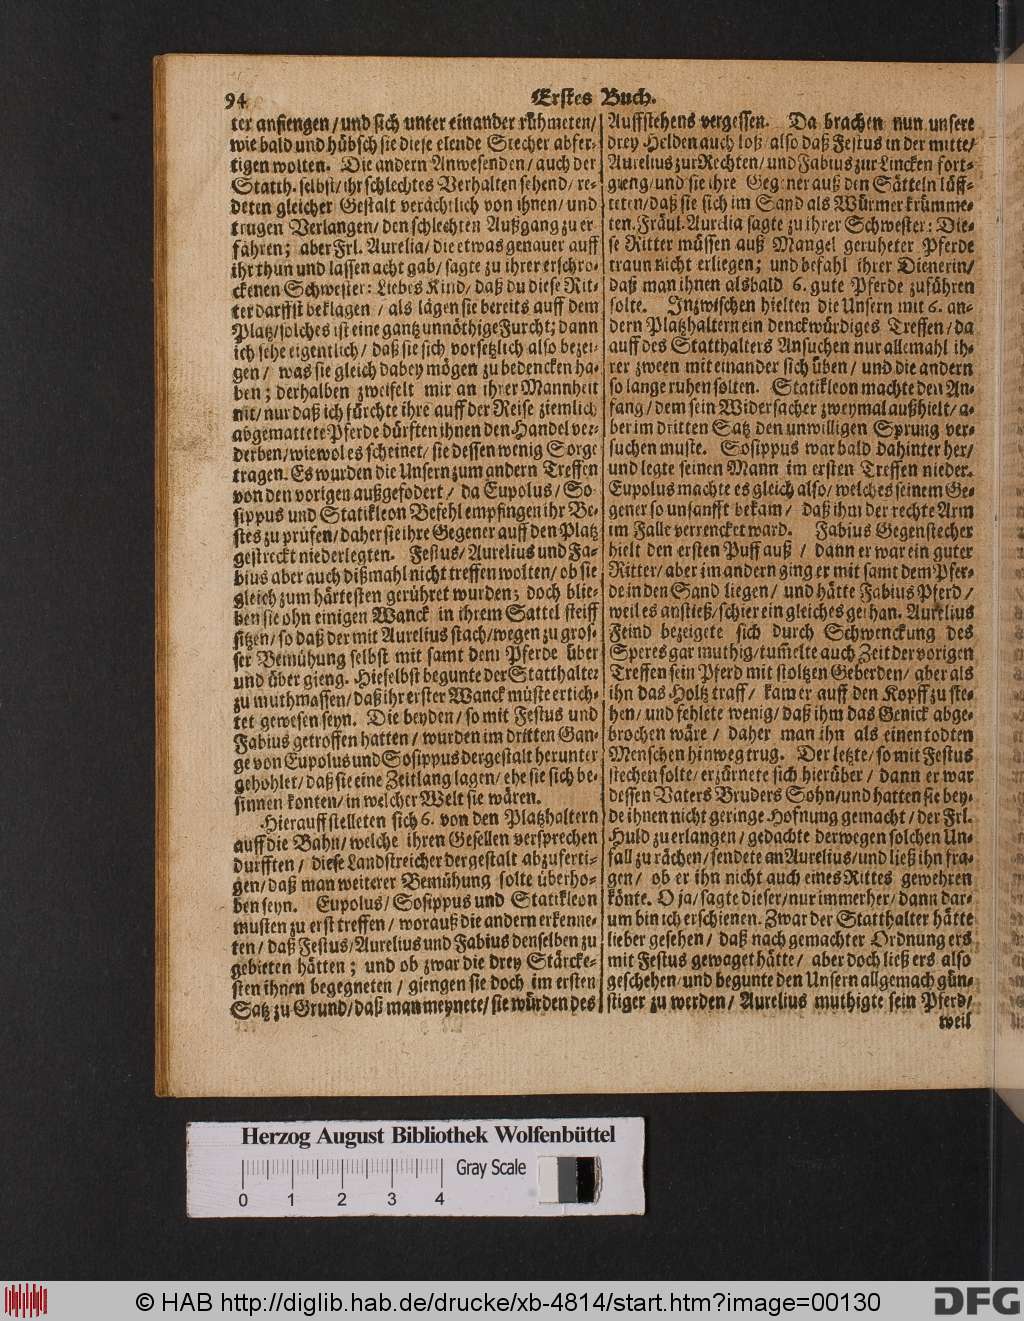 94
Erstes Buch.
ter anfiengen/und sich unter einander rühmeten/
wie bald und hübsch sie diese elende Stecher abfer-
tigen wolten. Die andern Anwesenden/auch der
Statth. selbst/ihr schlechtes Verhalten sehend/re-
deten gleicher Gestalt verächtlich von ihnen/und
trugen Verlangen/den schlechten Außgang zu er
fahren; aber Frl. Aurelia/die etwas genauer auff
ihr thun und lassen acht gab/sagte zu ihrer erschro-
ckenen Schwester: Liebes Kind/daß du diese Rit-
ter darffst beklagen/als lägen sie bereits auff dem
Platz/solches ist eine gantz unnöthige Furcht; dann
ich sehe eigentlich/daß sie sich vorsetzlich also bezei-
gen/was sie gleich dabey mögen zu bedencken ha-
ben; derhalben zweifelt mir an ihrer Mannheit
nit/nur daß ich fürchte ihre auff der Reise ziemlich
abgemattete Pferde dürften ihnen den Handel ver-
derben/wiewol es scheinet/sie dessen wenig Sorge
tragen. Es wurden die Unsern zum andern Treffen
von den vorigen außgefodert/da Eupolus/So-
sippus und Statikleon Befehl empfingen ihr Be-
stes zu prüfen/daher sie ihre Gegener auff den Platz
gestreckt niederlegten. Festus/Aurelius und Fa-
bius aber auch dißmahl nicht treffen wolten/ob sie
gleich zum härtesten gerühret wurden; doch blie-
ben sie ohn einigen Wanck in ihrem Sattel steiff
sitzen/so daß der mit Aurelius stach/wegen zu gros-
ser Bemühung selbst mit samt dem Pferde über
und über gieng. Hieselbst begunte der Statthalter
zu muthmassen/daß ihr erster Wanck müste ertich-
tet gewesen seyn. Die beyden/so mit Festus und
Fabius getroffen hatten/wurden im dritten Gan-
ge von Eupolus und Sosippus dergestalt herunter
gehohlet/daß sie eine Zeitlang lagen/ehe sie sich be-
sinnen konten/in welcher Welt sie wären.
Hierauff stelleten sich 6. von den Platzhaltern
auff die Bahn/welche ihren Gesellen versprechen
durfften/diese Landstreicher dergestalt abzuferti-
gen/daß man weiterer Bemühung solte überho-
ben seyn. Eupolus/Sosippus und Statikleon
musten zu erst treffen/worauß die andern erkenne-
ten/daß Festus/Aurelius und Fabius denselben zu
gebieten hätten; und ob zwar die drey Stärcke-
sten ihnen begegneten/giengen sie doch im ersten
Satz zu Grund/daß man meynete/sie würden des
Auffstehens vergessen. Da brachen nun unsere
drey Helden auch loß/also daß Festus in der mitte/
Aurelius zur Rechten/und Fabius zur Lincken fort-
gieng/und sie ihre Gegener auß den Sätteln löff-
teten/daß sie sich im Sand als Würmer krümme-
ten. Fräul. Aurelia sagte zu ihrer Schwester: Die-
se Ritter müssen auß Mangel geruheter Pferde
traun nicht erliegen; und befahl ihrer Dienerin/
daß man ihnen alsbald 6. gute Pferde zuführen
solte. Inzwischen hielten die Unsern mit 6. an-
dern Platzhaltern ein denckwürdiges Treffen/da
auff des Statthalters Ansuchen nur allemahl ih-
rer zween mit einander sich üben/und die andern
so lange ruhen solten. Statikleon machte den An-
fang/dem sein Widersacher zweymal außhielt/a-
ber im dritten Satz den unwilligen Sprung ver-
suchen muste. Sosippus war bald dahinter her/
und legte seinen Mann im ersten Treffen nieder.
Eupolus machte es gleich also/welches seinem Ge-
gener so unsanfft bekam/daß ihm der rechte Arm
im Falle verrencket ward. Fabius Gegenstecher
hielt den ersten Puff auß/dann er war ein guter
Ritter/aber im andern ging er mit samt dem Pfer-
de in den Sand liegen/und hätte Fabius Pferd/
weil es anstieß/schier ein gleiches gethan. Aurelius
Feind bezeigete sich durch Schwenckung des
Speres gar muthig/tum̃elte auch Zeit der vorigen
Treffen sein Pferd mit stoltzen Geberden/aber als
ihn das Holtz traff/kam er auff den Kopff zu ste-
hen/und fehlete wenig/daß ihm das Genick abge-
brochen wäre/daher man ihn als einen todten
Menschen hinweg trug. Der letzte/so mit Festus
stechen solte/erzürnete sich hierüber/dann er war
dessen Vaters Bruders Sohn/und hatten sie bey-
de ihnen nicht geringe Hofnung gemacht/der Frl.
Huld zu erlangen/gedachte derwegen solchen Un-
fall zu rächen/sendete an Aurelius/und ließ ihn fra-
gen/ob er ihn nicht auch eines Rittes gewehren
könte. O ja/sagte dieser/nur immer her/dann dar-
um bin ich erschienen. Zwar der Statthalter hätte
lieber gesehen/daß nach gemachter Ordnung ers
mit Festus gewaget hätte/aber doch ließ ers also
geschehen/und begunte den Unsern allgemach gün-
stiger zu werden/Aurelius muthigte sein Pferd/
weil
Herzog August Bibliothek Wolfenbüttel
Gray Scale
0 1 2 3 4
© HAB http://diglib.hab.de/drucke/xb-4814/start.htm?image=00130
DFG